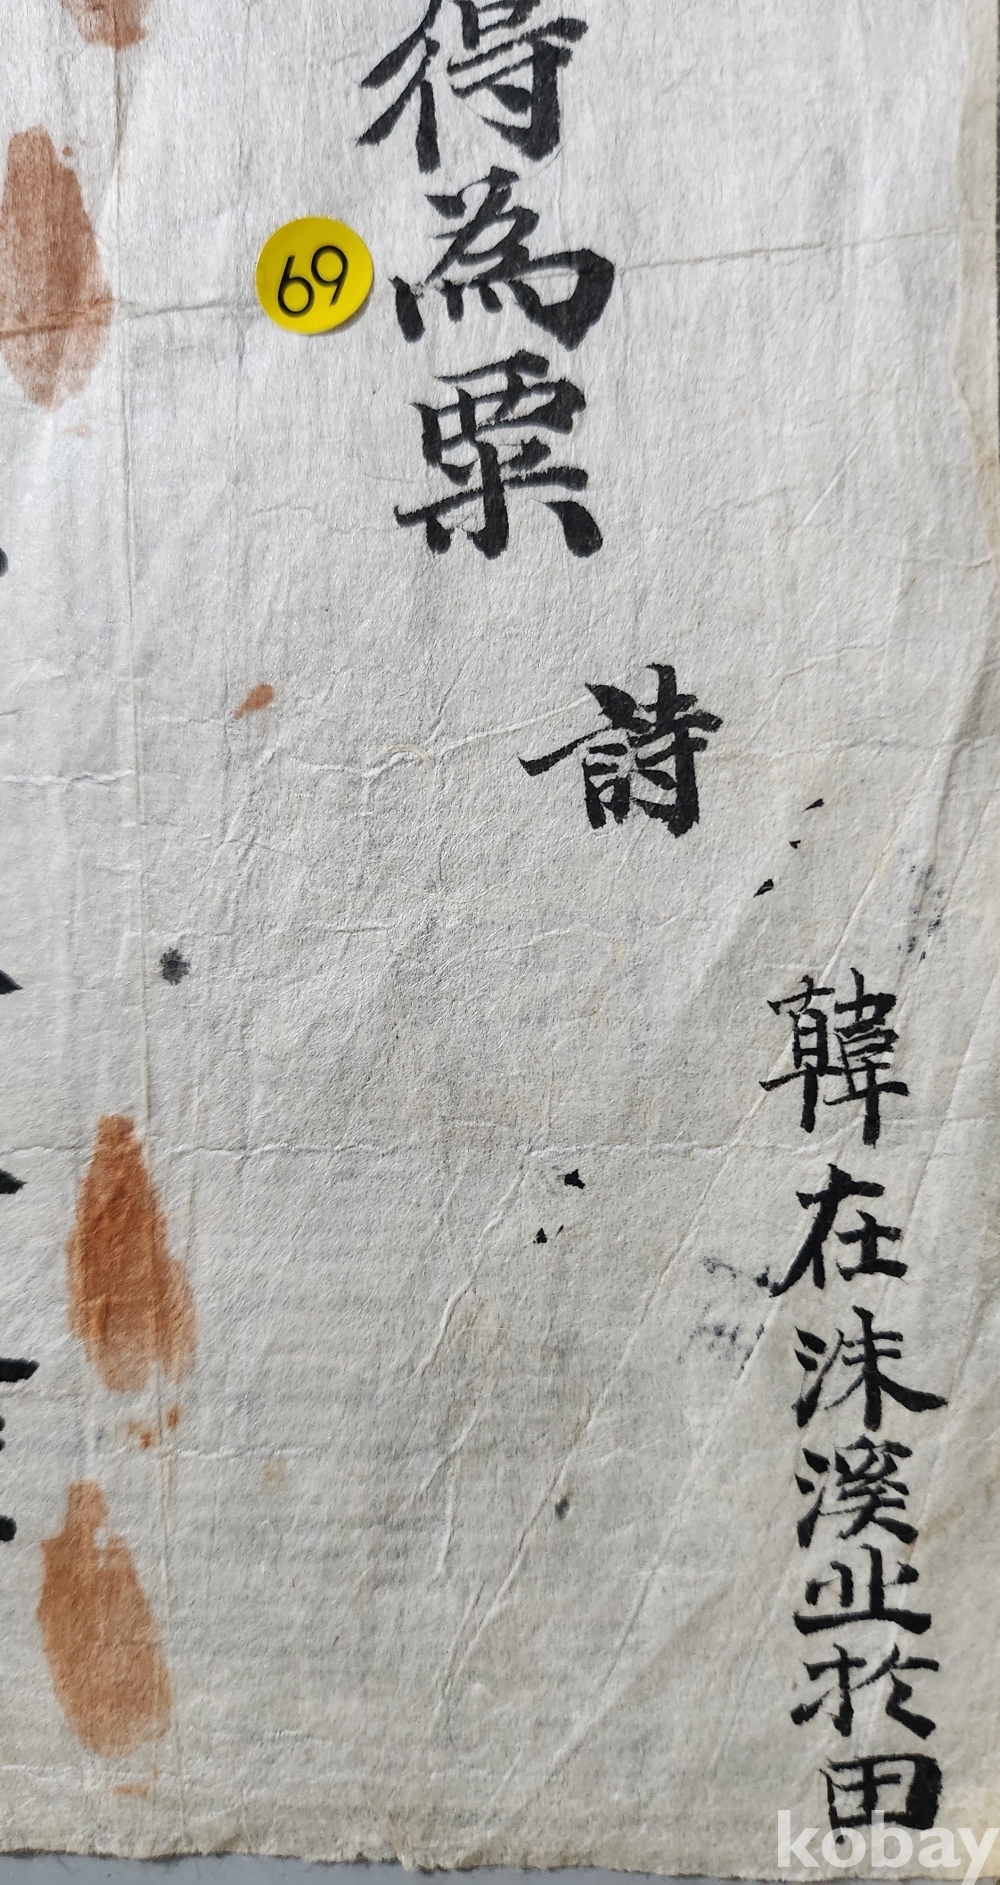 韓在洙溪业於田
得為粟
詩
69
kobay